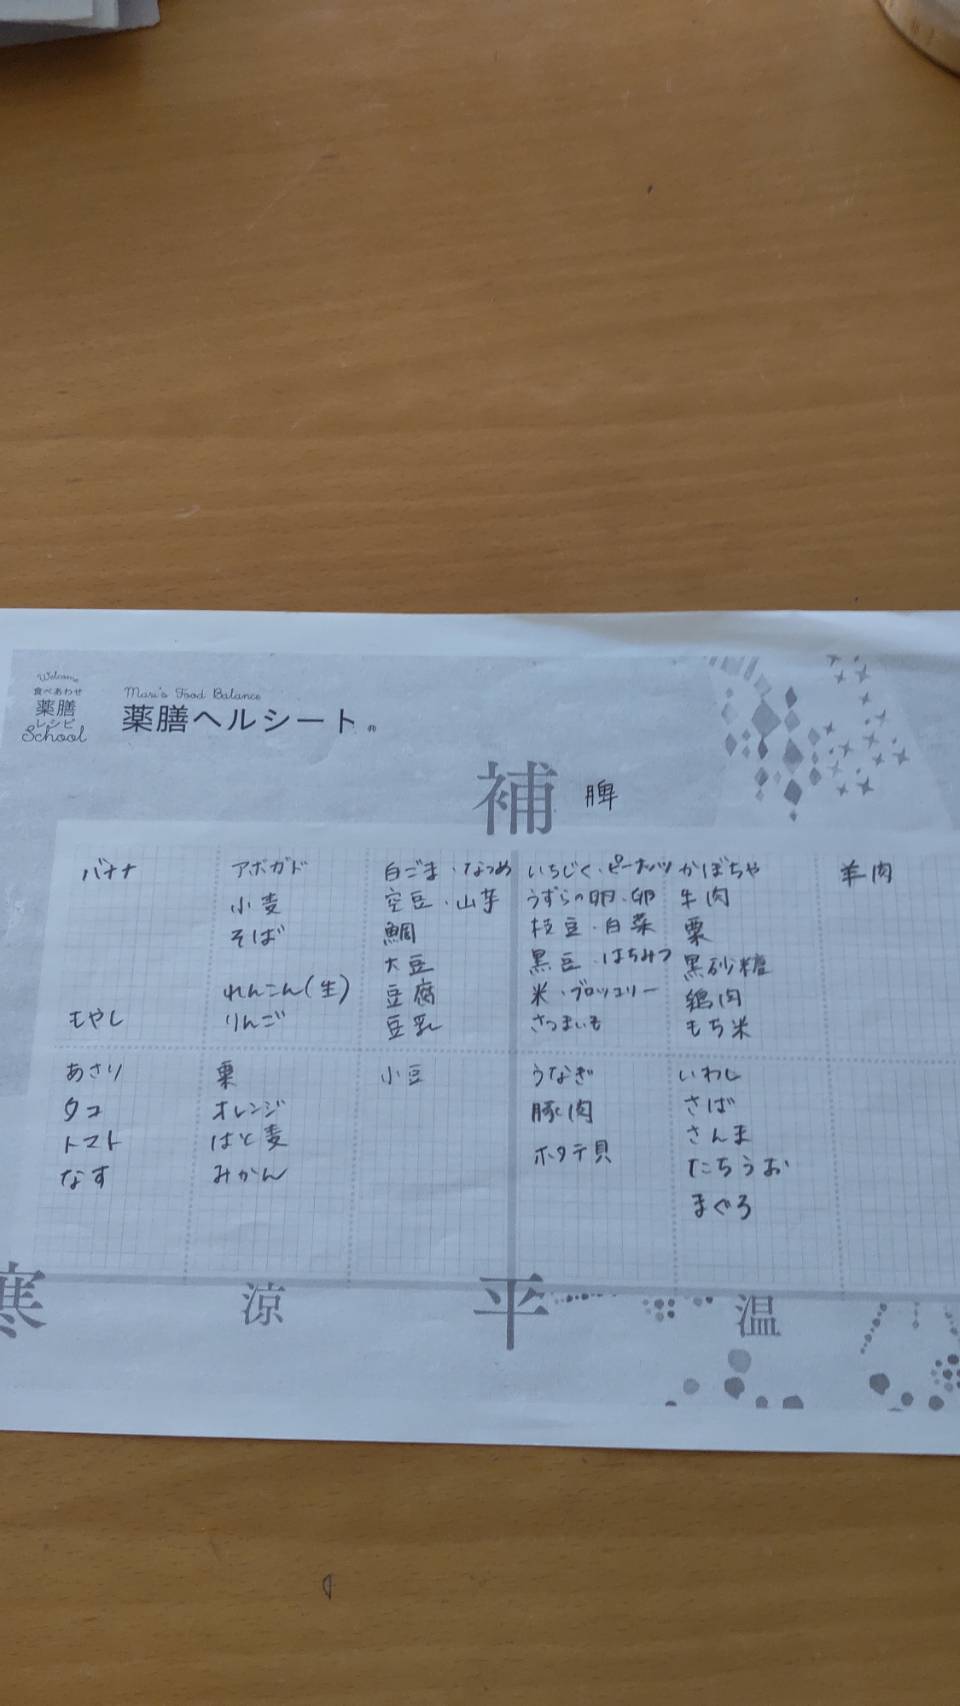 Welcome
食べあわせ
薬膳
レシピ
School
Mari's Food Balance
薬膳ヘルシート®
補 脾
バナナ
もやし
アボガド
小麦
そば
れんこん(生)
りんご
白ごま・なつめ
空豆・山芋
鯛
大豆
豆腐
豆乳
いちじく・ピーナッツ
うずらの卵・卵
枝豆・白菜
黒豆・はちみつ
米・ブロッコリー
さつまいも
かぼちゃ
牛肉
栗
黒砂糖
鶏肉
もち米
羊肉
あさり
タコ
トマト
なす
粟
オレンジ
はと麦
みかん
小豆
うなぎ
豚肉
ホタテ貝
いわし
さば
さんま
たちうお
まぐろ
寒 涼 平 温